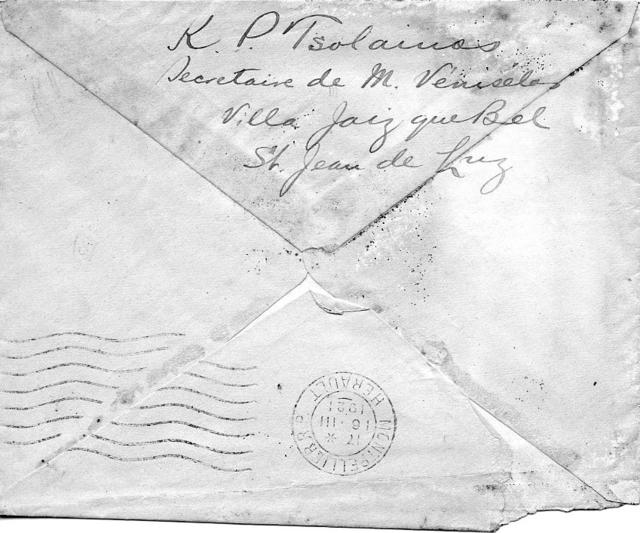 K. P. Tsolainos
Secretaire de M. Véniselos
Villa Jaizquebel
St. Jean de Luz
MONTPELLIER
HERAULT
17 *
16 · III
1921